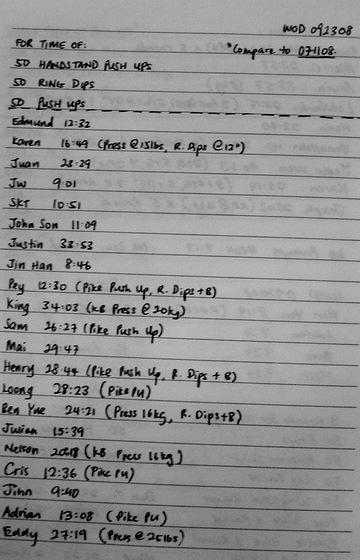 WOD 092308
FOR TIME OF: *Compare to 071108
50 HANDSTAND PUSH UPS
50 RING DIPS
50 PUSH UPS
Edmund 12:32
Karen 16:49 (Press @15lbs, R. Dips @12")
Juan 28:29
JW 9:01
SKT 10:51
John Son 11:09
Justin 33:53
Jin Han 8:46
Pey 12:30 (Pike Push Up, R. Dips+B)
King 34:03 (KB Press @20kg)
Sam 26:27 (Pike Push Up)
Mai 29:47
Henry 28:44 (Pike Push Up, R. Dips + B)
Loong 28:23 (Pike PU)
Ben Yue 24:21 (Press 16kg, R. Dips+B)
Julian 15:39
Nelson (KB Press 16kg)
Cris 12:36 (Pike PU)
Jihn 9:40
Adrian 13:08 (Pike PU)
Eddy 27:19 (Press @25lbs)